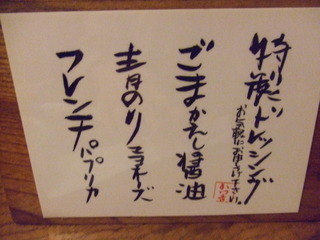 特製ドレッシング
お気軽にお申し付け下さい。
ごまかえし醤油
青のりマヨネーズ
フレンチパプリカ